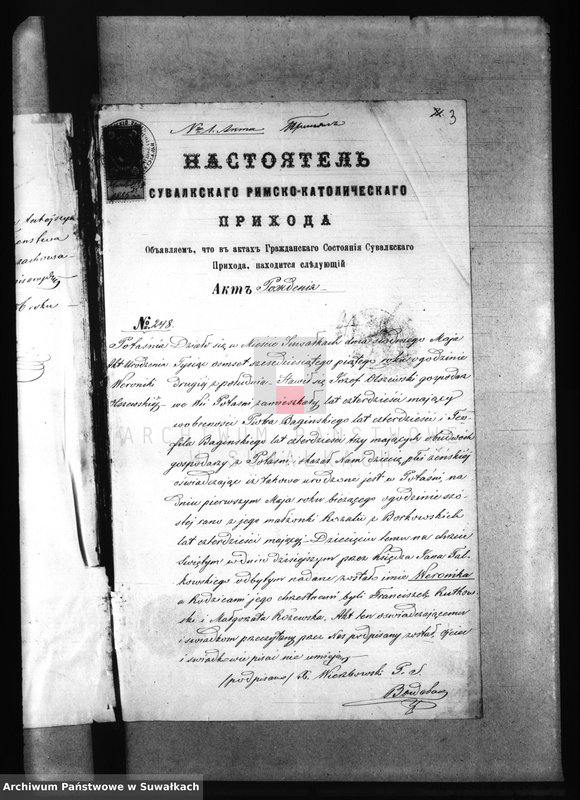 3
№ 1. Акта
НАСТОЯТЕЛЬ
СУВАЛКСКАГО РИМСКО-КАТОЛИЧЕСКАГО
ПРИХОДА
Объявляемъ, что въ актахъ Гражданскаго Состоянія Сувалкскаго
Прихода, находится слѣдующій
Актъ Рожденія
№ 248.
Potaśnia Działo się w Mieście Suwałkach dnia siódmego Maja
Akt Urodzenia Tysiąc ośmset sześćdziesiątego piątego roku o godzinie
Weroniki drugiej z południa. Stawił się Józef Olszewski gospodarz
we Wsi Potaśni zamieszkały, lat czterdzieści mający
w obecności Piotra Bagińskiego lat czterdzieści i Teo-
fila Bagińskiego lat czterdzieści trzy mających obudwóch
gospodarzy z Potaśni, okazał Nam dziecię płci żeńskiej
oświadczając iż takowe urodzone jest w Potaśni, na
dniu pierwszym Maja roku bieżącego o godzinie szó-
stej rano z jego małżonki Rozalii z Borkowskich
lat czterdzieści mającej. Dziecięciu temu na chrzcie
świętym w dniu dzisiejszym przez Księdza Jana Fal-
kowskiego odbytym nadane zostało imię Weronika
a Rodzicami jego chrzestnemi byli Franciszek Rutkow-
ski i Małgorzata Rożewska, Akt ten oświadczającemu
i świadkom przeczytany przez Nas podpisany został, ojciec
i świadkowie pisać nie umieją
/podpisano/ X. Wierzbowski
ARCHIWUM PAŃSTWOWE
W SUWAŁKACH
Archiwum Państwowe w Suwałkach